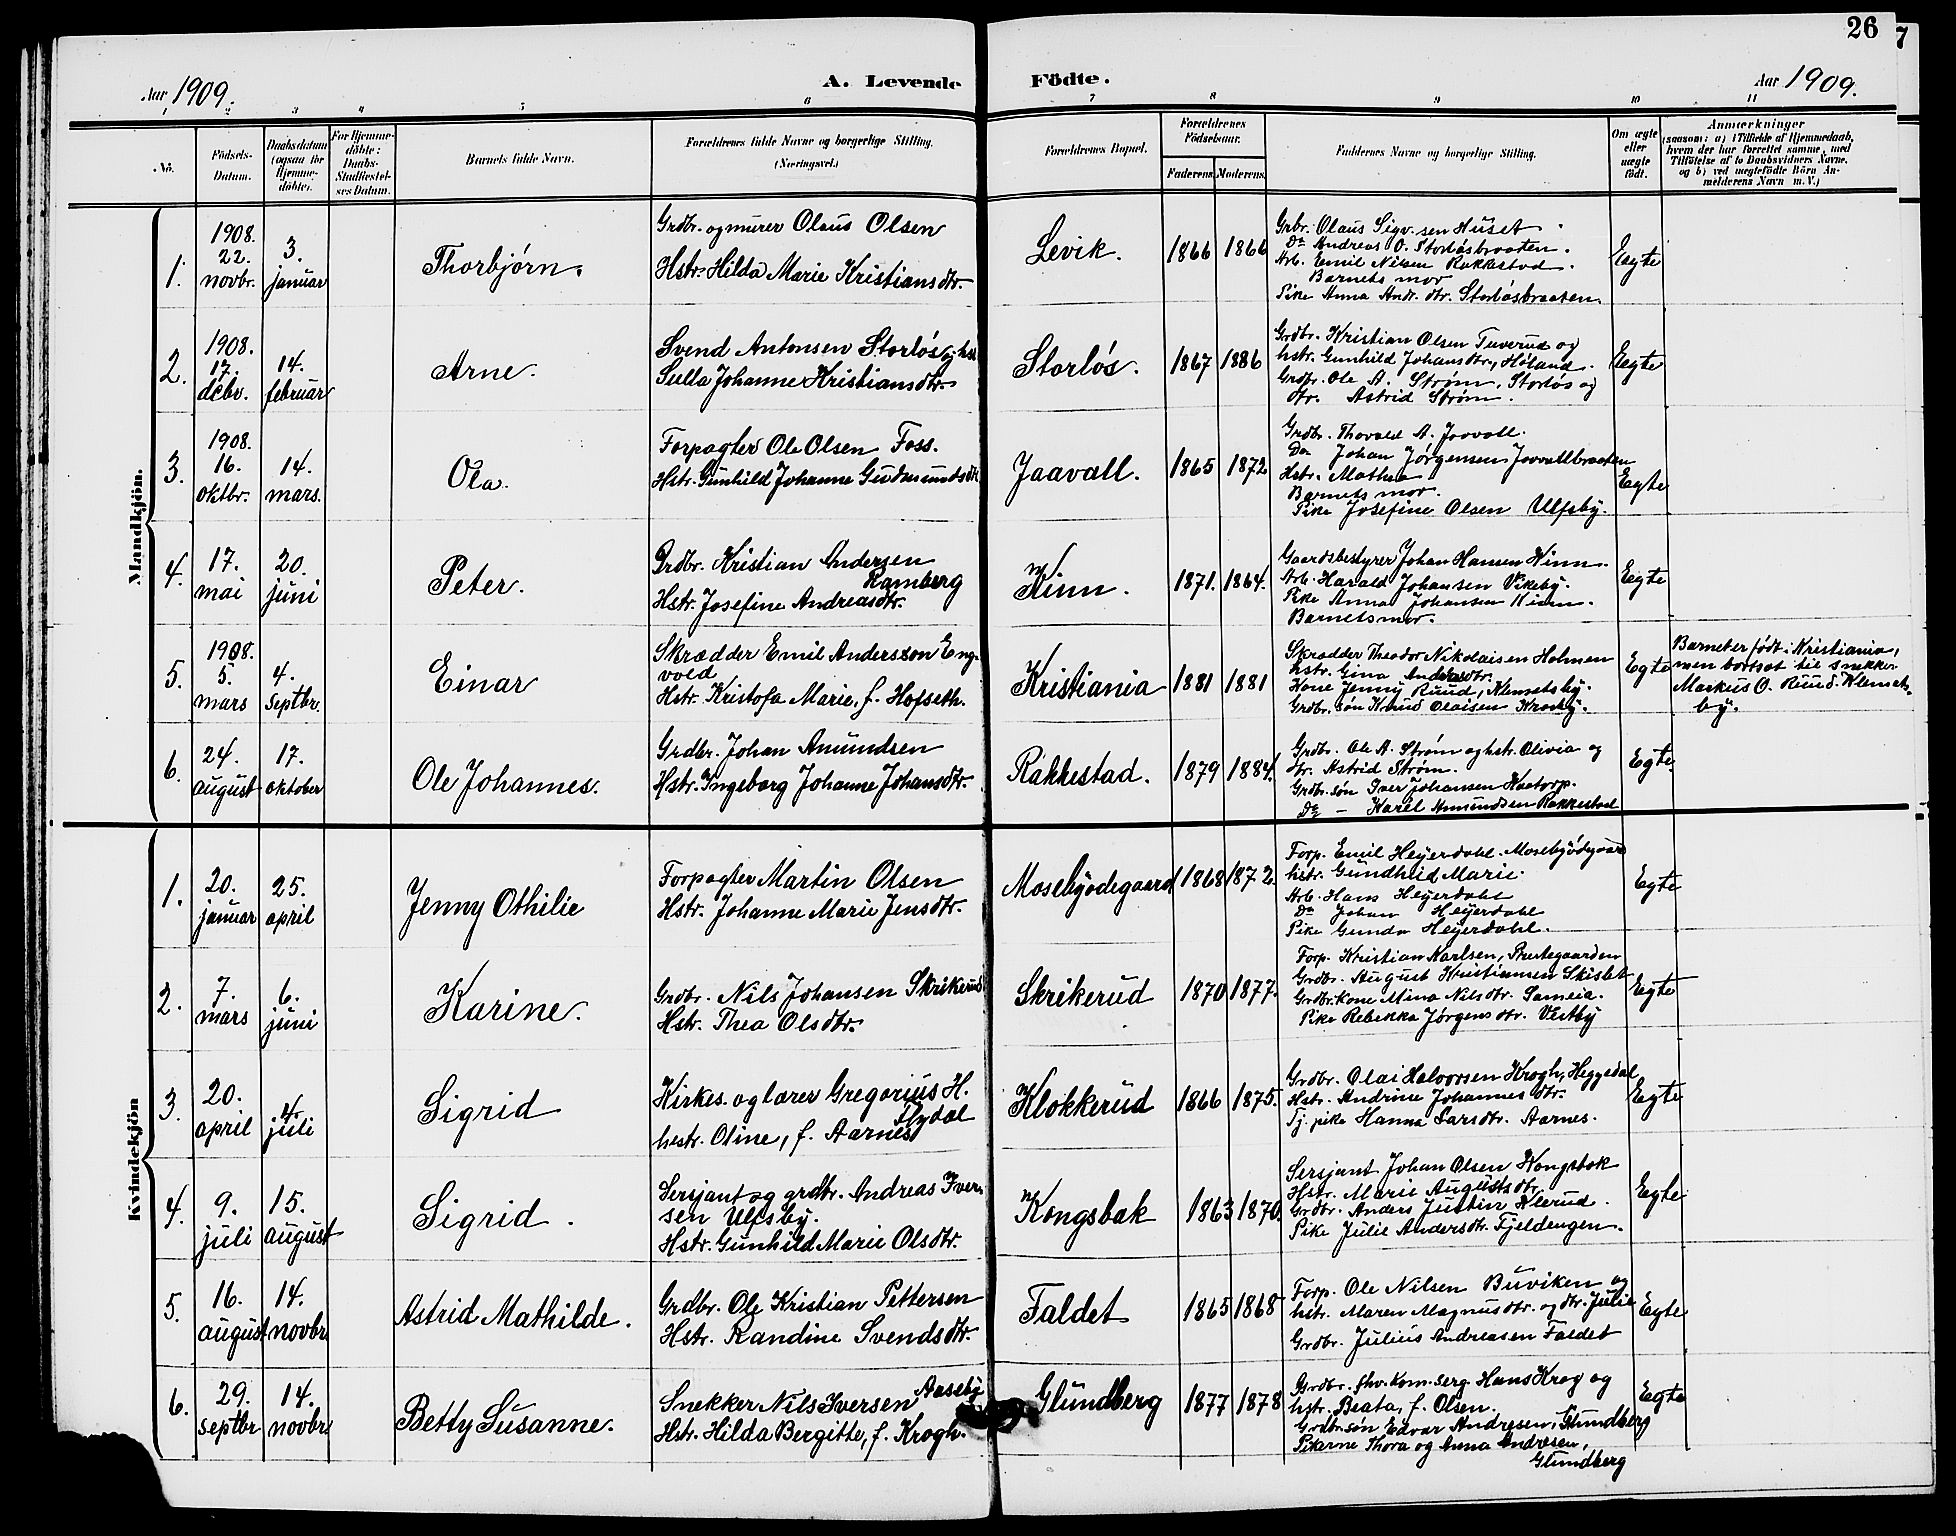 26
7
Aar 1909.
A. Levende Födte.
Aar 1909.
1 2 3 4 5 6 7 8 9 10 11
No.
Födsels-Datum.
Daabsdatum (ogsaa for Hjemme-döbte).
For Hjemme-döbte: Daabs-Stadfæstel-ses Datum.
Barnets fulde Navn.
Forældrenes fulde Navne og borgerlige Stilling. (Næringsvei.)
Forældrenes Bopæl.
Forældrenes Födselsaar.
Faderens. Moderens.
Faddernes Navne og borgerlige Stilling.
Om ægte eller uægte födt.
Anmærkninger
(saasom: a) i Tilfælde af Hjemmedaab,
hvem der har forrettet samme, med
Tilföielse af to Daabsvidners Navne,
og b) ved uægtefödte Börn An-
melderens Navn m. V.)
Mandkjön.
1.
1908.
22.
novbr.
3.
januar
Thorbjørn.
Grdbr. og murer Olaus Olsen
Hstr. Hilda Marie Kristiansdtr.
Levik.
1866 1866
Grbr. Olaus Sigv.sen Huset
Do Andreas O. Storløsbraaten.
Arb. Emil Nilsen Rakkestad.
Barnets mor
Pike Anna Andr. dtr. Storløsbraaten.
Egte
2.
1908.
17.
decbr.
14.
februar
Arne.
Svend Antonsen Storløs og hst.
Sulla Johanne Kristiansdtr.
Storløs.
1867 1886
Grdbr. Kristian Olsen Tuverud og
hstr. Gunhild Johansdtr, Høland.
Grdbr. Ole A. Strøm, Storløs og
dtr. Astrid Strøm.
Egte
3.
1908.
16.
oktbr.
14.
mars.
Ola.
Forpagter Ole Olsen Foss.
Hstr. Gunhild Johanne Gudmundsdtr
Jaavall.
1865 1872
Grdbr. Thovald A. Jaavall.
Do Johan Jørgensen Jaavallbraaten
Hstr. Mathea
Barnets mor.
Pike Josefine Olsen Ulfsby.
Egte
4.
17.
mai
20.
juni
Peter.
Grdbr. Kristian Andersen
Ramberg
Hstr. Josefine Andreasdtr.
Kinn.
1871. 1864.
Gaardsbestyrer Johan Hansen Kinn.
Arb. Harald Johansen Vikeby.
Pike Anna Johansen Kinn.
Barnets mor.
Egte
5.
1908.
5.
mars
4.
Septbr.
Einar
Skrædder Emil Andersson Eng-
vold
Hstr. Kristofa Marie, f. Hofseth.
Kristiania
1881 1881
Skrædder Theodor Nikolaisen Holmen
hstr. Gina Andersdtr.
Kone Jenny Ruud, Klemetsby.
Grdbr. søn Knud Olaisen Krosby.
Egte
Barnet er født i Kristiania,
men bortsat til snekker
Markus O. Ruud Klemets-
by.
6.
24.
august
17.
oktober
Ole Johannes.
Grdbr. Johan Amundsen
Hstr. Ingeborg Johanne Johansdtr.
Rakkestad.
1879 1884.
Grdbr. Ole A. Strøm og hstr. Olivia og
dtr. Astrid Strøm.
Grdbr. søn Iver Johansen Haatorp.
Do — Karel Amundsen Rakkestad
Egte.
Kvindekjön
1.
20.
januar
25.
april
Jenny Othilie
Forpagter Martin Olsen
Hstr. Johanne Marie Jensdtr.
Mosebyødegaard
1868 1872.
Forp. Emil Heyerdahl. Mosebyødgaard
hstr. Gundhild Marie.
Arb. Hans Heyerdahl
Do Johan Heyerdahl
Pike Gunda Heyerdahl.
Egte
2.
7.
mars
6.
juni
Karine.
Grdbr. Nils Johansen Skrikerud
Hstr. Thea Olsdtr.
Skrikerud
1870 1877.
Forp. Kristian Karlsen, Prestegaarden
Grdbr. August Kristiansen Skislet
Grdbr. kone Mina Nilsdtr. Sameia.
Pike Rebekka Jørgensdtr. Vestby
Egte
3.
20.
april
4.
juli
Sigrid
Kirkes. og lærer Gregorius H.
Flydal
hustr. Oline, f. Aarnes
Klokkerud
1866 1875.
Grdbr. Olai Halvorsen Krogh, Heggedal
Hstr. Andrine Johannesdtr.
Tj. pike Hanna Larsdtr. Aarnes.
Egte
4.
9.
juli
15.
august
Sigrid.
Sersjant og grdbr. Andreas Iver-
sen Ulfsby.
Hstr. Gunhild Marie Olsdtr.
Kongsbak
1863 1870.
Sersjant Johan Olsen Kongsbak
Hstr. Marie Augustsdtr
Grdbr. Anders Justin Klerud.
Pike Julie Andersdtr. Fjeldengen.
Egte
5.
16.
august
14.
novbr
Astrid Mathilde.
Grdbr. Ole Kristian Pettersen
Hstr. Randine Svendsdtr.
Faldet
1865 1868
Forp. Ole Nilsen Buviken og
hstr. Maren Magnusdtr. og dtr. Julie
Grdbr. Julius Andreasen Faldet
Egte
6.
29.
septbr
14.
novbr
Betty Susanne.
Snekker Nils Iversen Aaseby
Hstr. Hilda Bergitte, f. Krogh.
Glundberg
1877 1878
Grdbr. fhv. kom. serg. Hans Krog og
hstr. Beata, f. Olsen.
Grdbr. søn Edvar Andresen, Glundberg
Pikerne Thora og Anna Andresen,
Glundberg
Egte